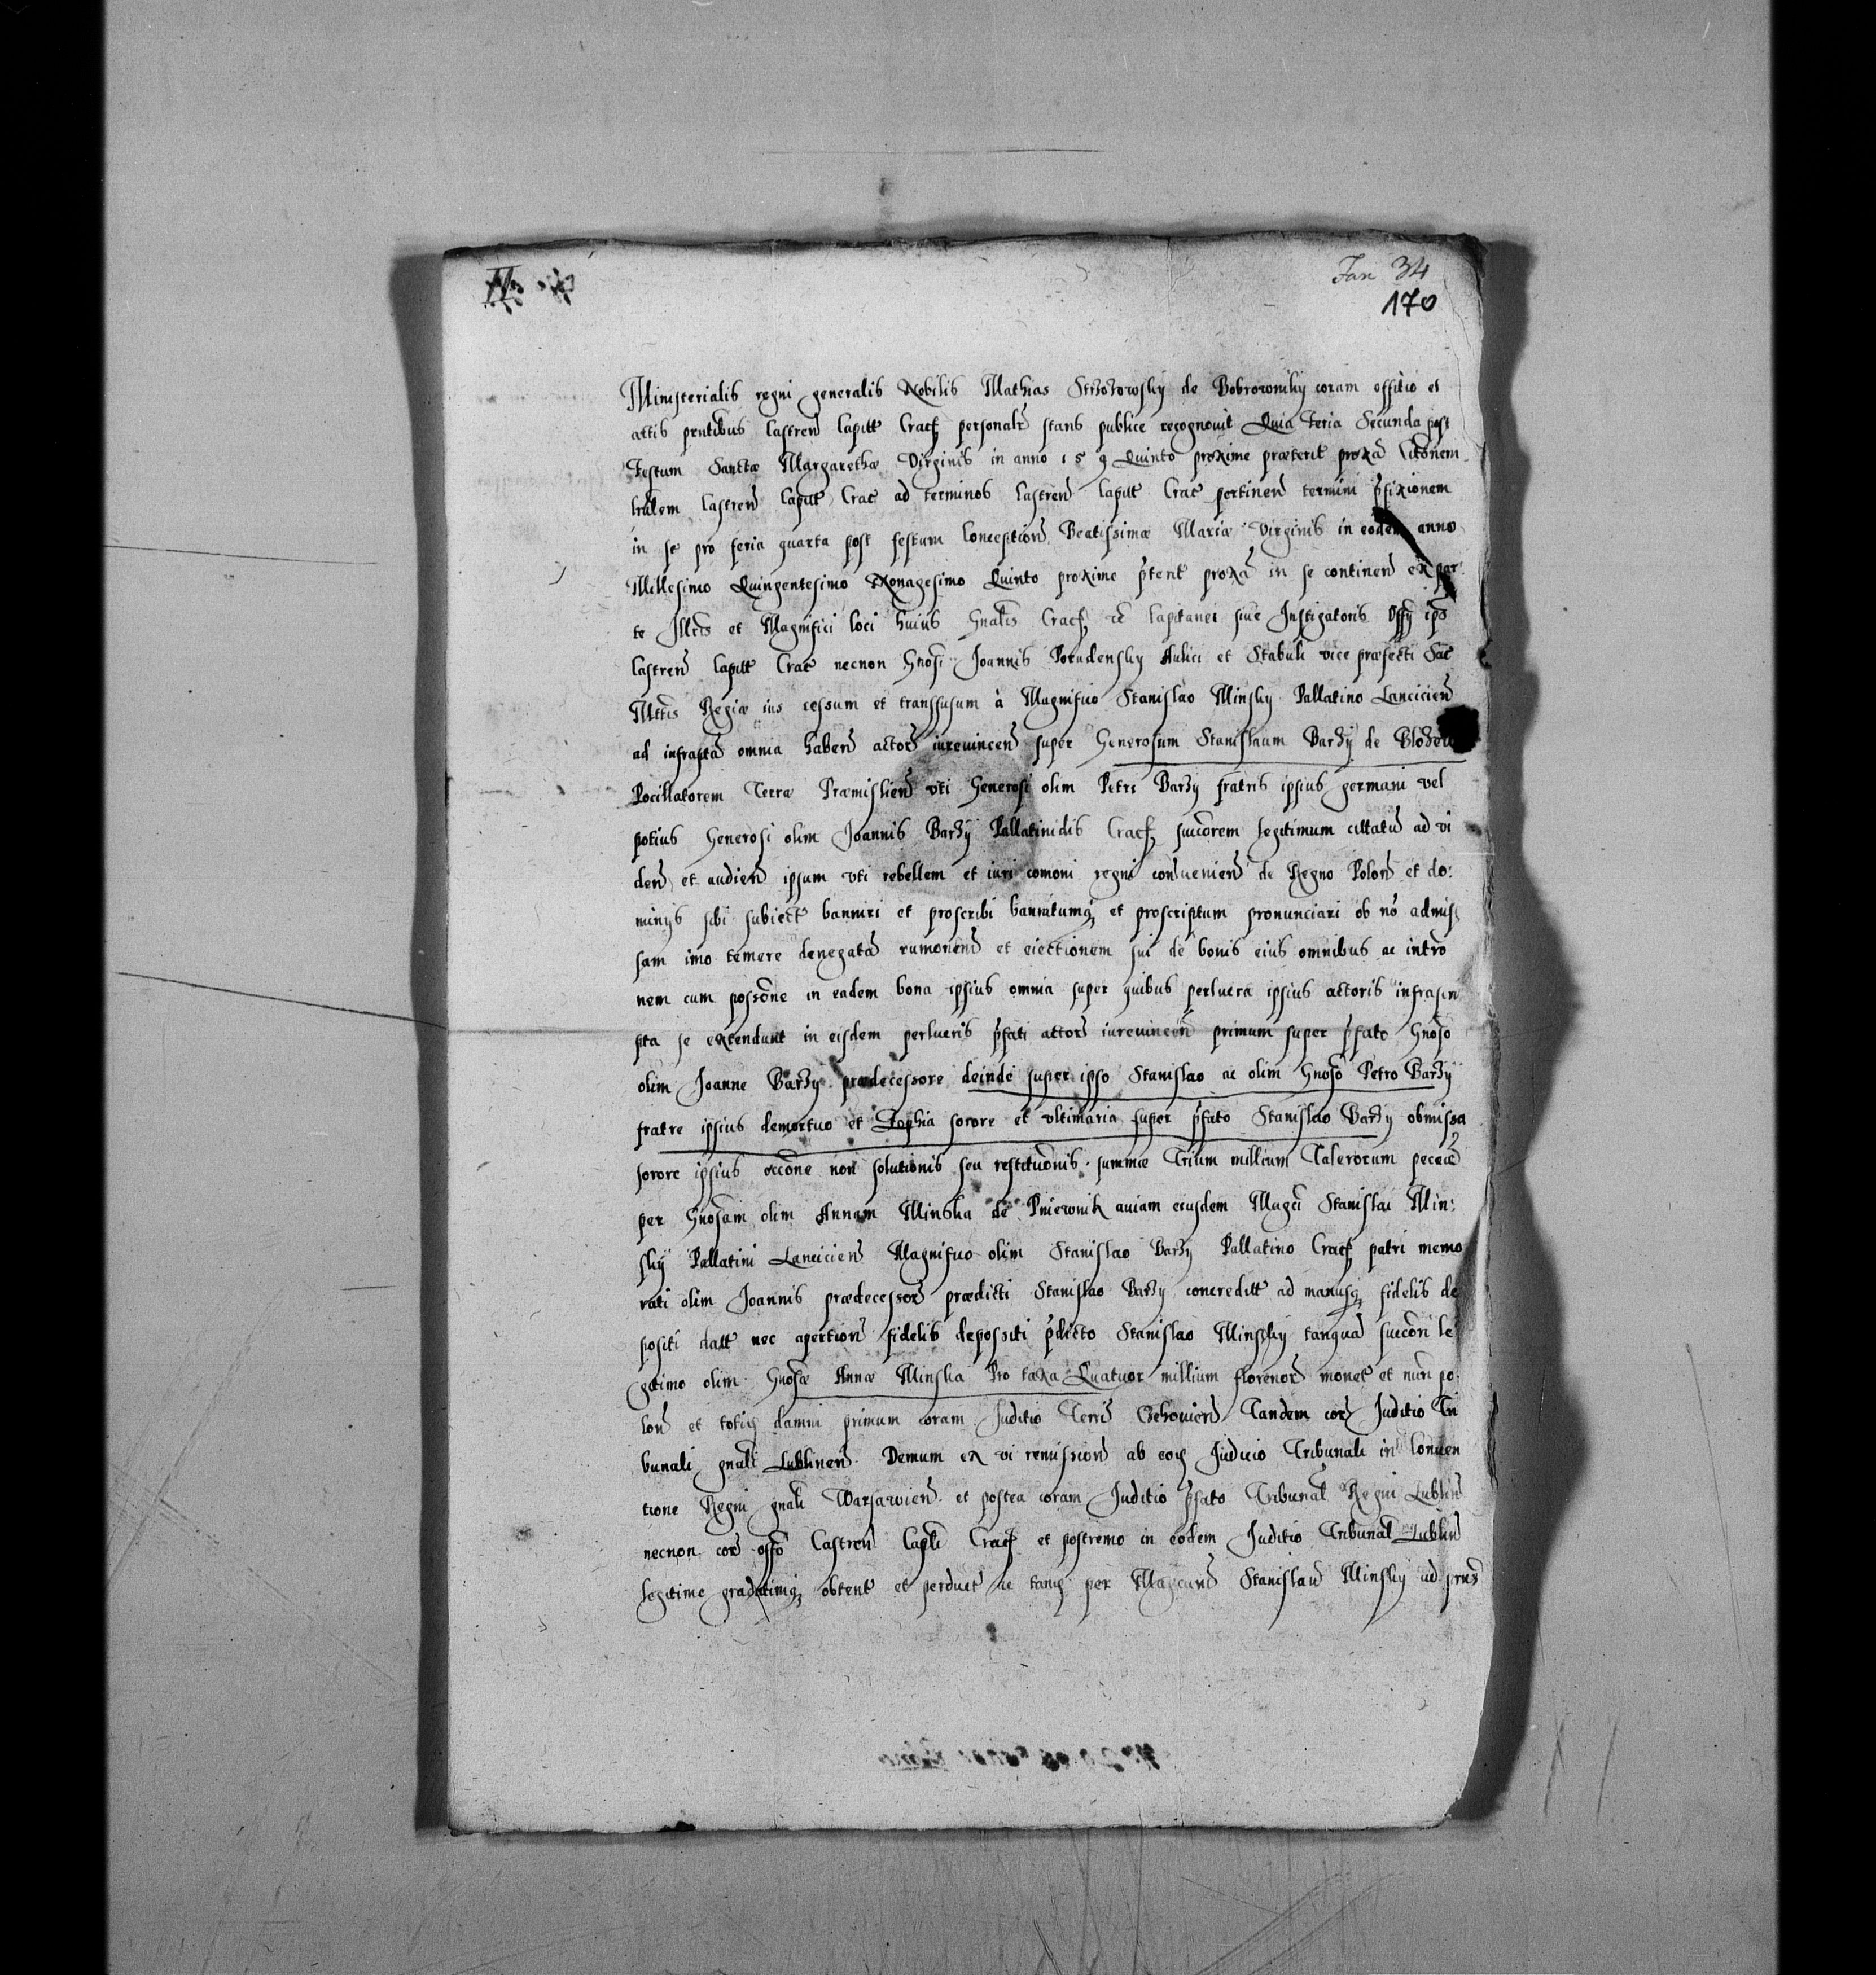 Jan 34
170
Ministerialis regni generalis Nobilis Mathias de Bobrowniky coram offitio et
actis pntibus Castreñ Capitt Cracf personalr stans publice recognovit Quia Feria Secunda post
Festum Sanctæ Margarethæ Virginis in anno 1 5 9 Quinto proxime præterit proxã Citõnem
Castreñ Capitt Crac ad terminos Castreñ Capitt Crac pertineñ termini pfixionem
in se pro feria quarta post festum Conception Beatissimæ Mariæ Virginis in eodem anno
Millesimo Quingentesimo Nonagesimo Quinto proxime pterit proxã in se contineñ ex par
te Illris et Magnifici loci huius Gnalis Cracf Capitanei siue Instigatoris Offy ips
Castreñ Capitt Crac necnon Gnosi Joannis Aulici et Stabuli vice præfecti Sac
Mttis Regiæ ius cessum et transfusum à Magnifico Stanislao Minsky Pallatino Lancicieñ
ad infraptã omnia habeñ actors iurevinceñ super Generosum Stanislaum Barzy de
Pocillatorem Terræ Præmislieñ vti Generosi olim Petri Barzy fratris ipsius germani vel
potius Generosi olim Joannis Barzy Pallatinidis Cracf, succõrem legitimum cittatũ ad vi
deñ et audieñ ipsum vti rebellem et iuri comoni regni convenieñ de Regno Poloñ et do:
minys sibi subiect banniri et proscribi bannitumq et proscriptum pronunciari ob nõ admis
sam imo temere denegatã rumõnem et eiectionem sui de bonis eius omnibus ac intro
nem cum possõne in eadem bona ipsius omnia super quibus perlucra ipsius actoris infrascri
pta se extendunt in eisdem perlucris pfati actors iurevinceñ primum super pfato Gnoso
olim Joanne Barzy prædecessore deinde super ipso Stanislao ac olim Gnoso Petro Barzy
fratre ipsius demortuo et Sophia sorore et vltimaria super pfato Stanislao Barzy obmissa
sorore ipsius occõne non solutionis seu restituõnis summæ Trium millium Talerorum
per Gnosam olim Annam Minska de Pniewnik auiam eiusdem Magci Stanislai Min:
sky Pallatini Lancicieñ Magnifico olim Stanislao Barzy Pallatino Cracf patri memo
rati olim Joannis prædecessors prædicti Stanislao Barzy concreditt ad manusq fidelis de
positi datt nec apertion fidelis depositi pdicto Stanislao Minsky tanquã succõri le
gitimo olim Gnosæ Annæ Minska Pro taxa Quatuor millium florenors monet et nuri po
loñ et totiq damni primum coram Juditio Terris Tandem cors Juditio Tri
bunali gnali Lublineñ Demum ex vi remissioñ ab eoq Juditio Tribunali in Conuen
tione Regni gnali Warsawieñ et postea coram Juditio pfato Tribunal Regni Lubliñ
necnon cors offo Castreñ Capli Cracf et postremo in eodem Juditio Tribunal Lubliñ
legitime gradatimq obtent et perduct ac tanq per Magcum Stanislaũ Minsky ad prns